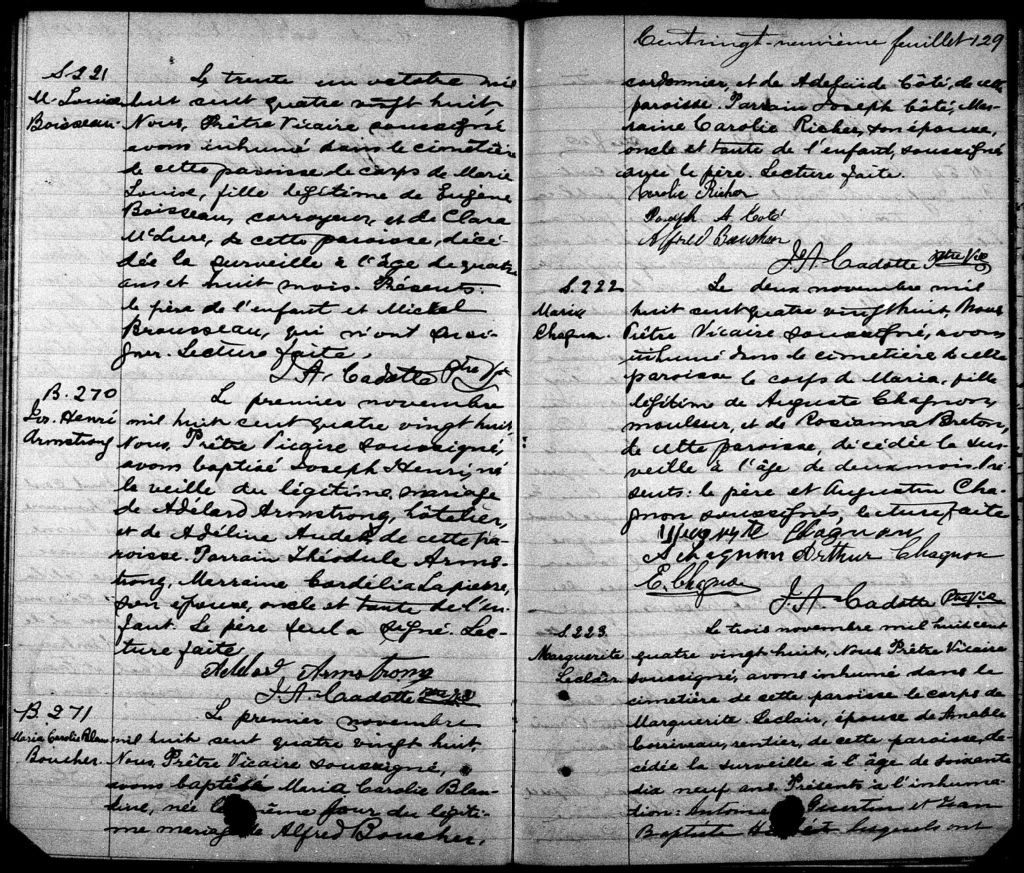 S.221
M. Louise
Boisseau.
Le trente un octobre mil
huit cent quatre vingt huit,
Nous, Prêtre Vicaire soussigné
avons inhumé dans le cimetière
de cette paroisse le corps de Marie
Louise, fille légitime de Eugène
Boisseau, corroyeur, et de Clara
McLure, de cette paroisse, décé-
dée la surveille à l'âge de quatre
ans et huit mois. Présents:
le père de l'enfant et Michel
Brousseau, qui n'ont su si-
gner. Lecture faite.
J. A. Cadotte Ptre
B. 270
Jos. Henri
Armstrong
Le premier novembre
mil huit cent quatre vingt huit,
Nous, Prêtre Vicaire soussigné,
avons baptisé Joseph Henri, né
la veille du légitime mariage
de Adélard Armstrong, hôtelier,
et de Adéline Audet, de cette pa-
roisse. Parrain Théodule Arms-
trong, Marraine Cordélia Lapierre,
son épouse, oncle et tante de l'en-
fant. Le père seul a signé. Lec-
ture faite
Adelard Armstrong
J. A. Cadotte
B. 271
Maria Carolie Blan
Boucher.
Le premier novembre
mil huit cent quatre vingt huit
Nous, Prêtre Vicaire soussigné,
avons baptisé Maria Carolie Blan-
dine, née le même jour du légiti-
me mariage de Alfred Boucher,
Cent vingt-neuvième feuillet 129
cordonnier, et de Adelaïde Côté, de cette
paroisse. Parrain Joseph Côté, Mar-
raine Carolie Richer, son épouse,
oncle et tante de l'enfant, soussignés
avec le père. Lecture faite.
Carolie Richer
Joseph A. Coté
Alfred Boucher
J. A. Cadotte Ptre Vic
S.222
Maria
Chagnon.
Le deux novembre mil
huit cent quatre vingt huit, Nous
Prêtre Vicaire soussigné, avons
inhumé dans le cimetière de cette
paroisse le corps de Maria, fille
légitime de Auguste Chagnon
mouleur, et de Rosianna Breton,
de cette paroisse, décédée la sur-
veille à l'âge de deux mois. Pré-
sents: le père et Augustin Cha-
gnon soussignés, lecture faite
Chagnon
A Chagnon Arthur Chagnon
E. Chagnon
J. A. Cadotte Ptre Vic
S.223.
Marguerite
Leclair.
Le trois novembre mil huit cent
quatre vingt huit, Nous Prêtre Vicaire
soussigné, avons inhumé dans le
cimetière de cette paroisse le corps de
Marguerite Leclair, épouse de Amable
Corriveau, rentier, de cette paroisse, dé-
cédée la surveille à l'âge de soixante
dix neuf ans. Présents à l'inhuma-
tion: Antoine Guertin et Jean
Baptiste lesquels ont